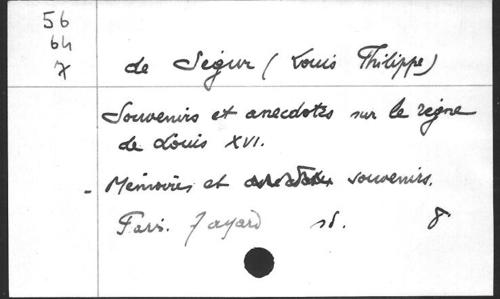 56
64
7
de Ségur (Louis Philippe)
Souvenirs et anecdotes sur le règne
de Louis XVI.
- Mémoires et souvenirs.
Paris. Fayard sd. 8